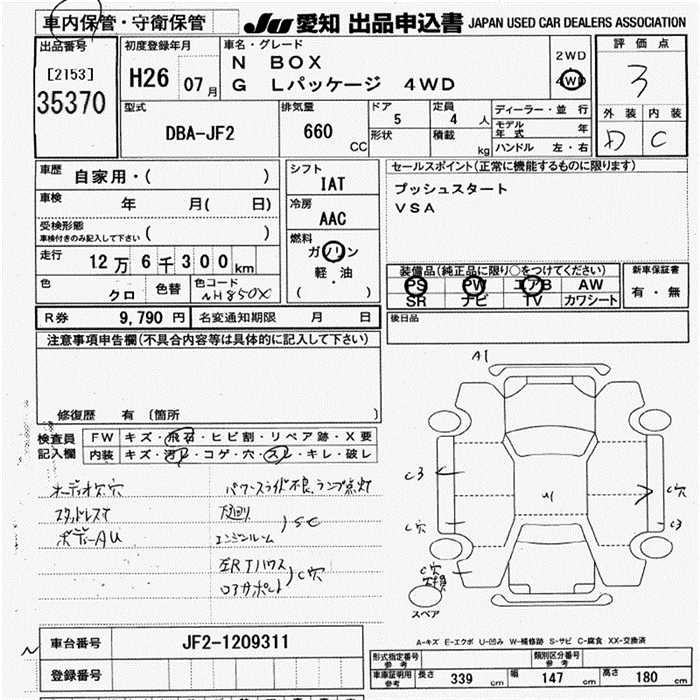 車内保管・守衛保管
JU 愛知 出品申込書 JAPAN USED CAR DEALERS ASSOCIATION
出品番号
[2153]
35370
初度登録年月
H26 07月
車名・グレード
N BOX
G Lパッケージ 4WD
2WD
4WD
評価点
3
外装 内装
D C
型式
DBA-JF2
排気量
660 CC
ドア 5
形状
定員 4 人
積載 kg
ディーラー・並行
モデル年式 年
ハンドル 左・右
車歴 自家用・( )
車検 年 月( 日)
受検形態
車検付きのみ記入して下さい ( )
走行 12万6千300km
色 クロ 色替 色コード NH850X
シフト
IAT
冷房
AAC
燃料
ガソリン
軽・油
( )
セールスポイント(正常に機能するものに限ります)
プッシュスタート
VSA
装備品(純正品に限り○をつけてください)
PS PW エアB AW
SR ナビ TV カワシート
新車保証書
有・無
R券 9,790円 名変通知期限 月 日
後日品
注意事項申告欄(不具合内容等は具体的に記入して下さい)
修復歴 有 〔箇所 〕
検査員記入欄
FW キズ・飛石・ヒビ割・リペア跡・X要
内装 キズ・汚れ・コゲ・穴・スレ・キレ・破レ
オーディオ欠穴
パワースライド不良、ランプ点灯
スタッドレス
下廻り
ボディーAU
エンジンルーム
SC
左RTハウス
ロアサポート
C穴
A1
C3
C穴
C穴
C3
C穴
スペア
A-キズ E-エクボ U-凹み W-補修跡 S-サビ C-腐食 XX-交換済
車台番号 JF2-1209311
登録番号
形式指定番号 参考
類別区分番号 参考
車庫証明用 参考
長さ 339 cm 幅 147 cm 高さ 180 cm